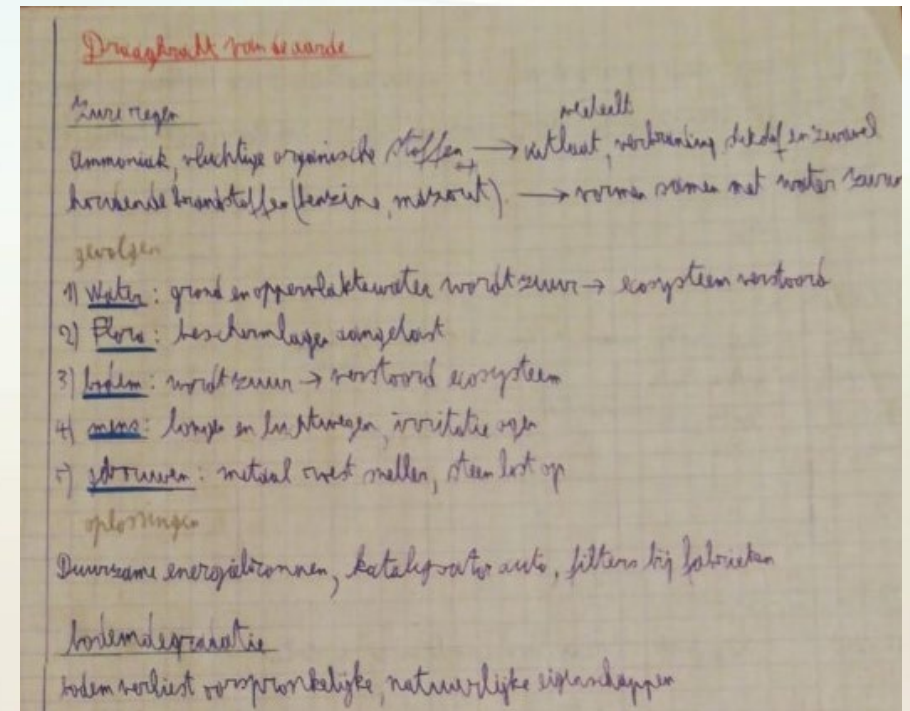 Draagkracht van de aarde
Zure regen
veeteelt
ammoniak, vluchtige organische stoffen → uitlaat, verbranding en zwavel
houdende brandstoffen (benzine, mazout) → vormen samen met water zuren
gevolgen
1) Water: grond en oppervlaktewater wordt zuur → ecosysteem verstoord
2) Flora: beschermlagen aangetast
3) bodem: wordt zuur → verstoord ecosysteem
4) mens: longen en luchtwegen, irritatie ogen
5) gebouwen: metaal roest sneller, steen lost op
oplossingen
Duurzame energiebronnen, katalysator auto, filters bij fabrieken
bodemdegradatie
bodem verliest oorspronkelijke, natuurlijke eigenschappen